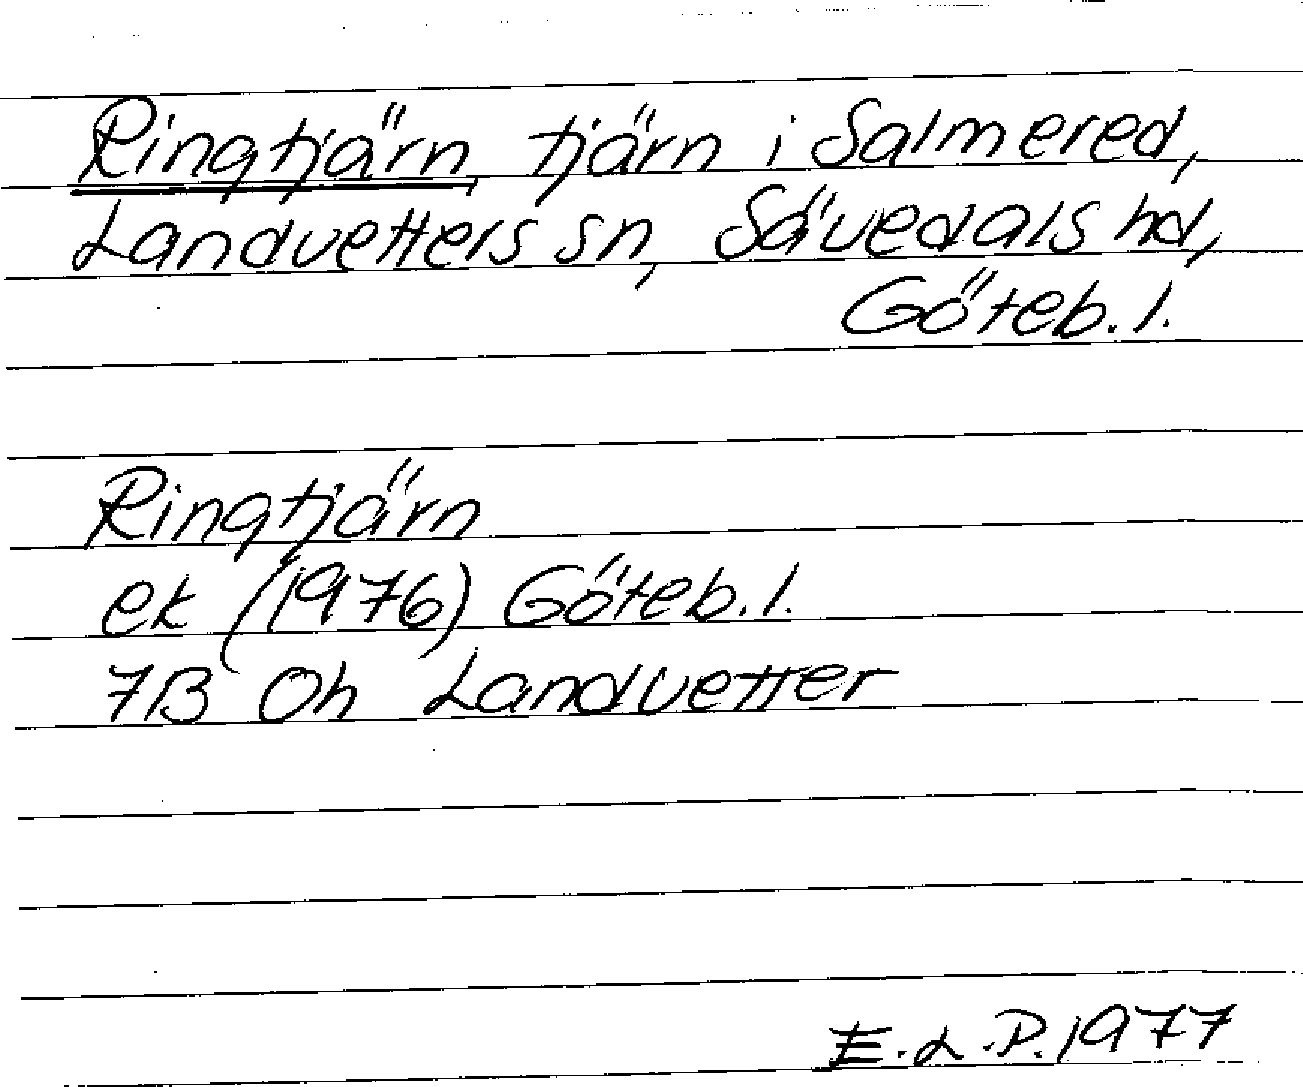 Ringtjärn, tjärn i Salmered,
Landvetters sn, Sävedals hd,
Göteb. l.
Ringtjärn
ek (1976) Göteb. l.
7B Oh Landvetter
E.L.P. 1977